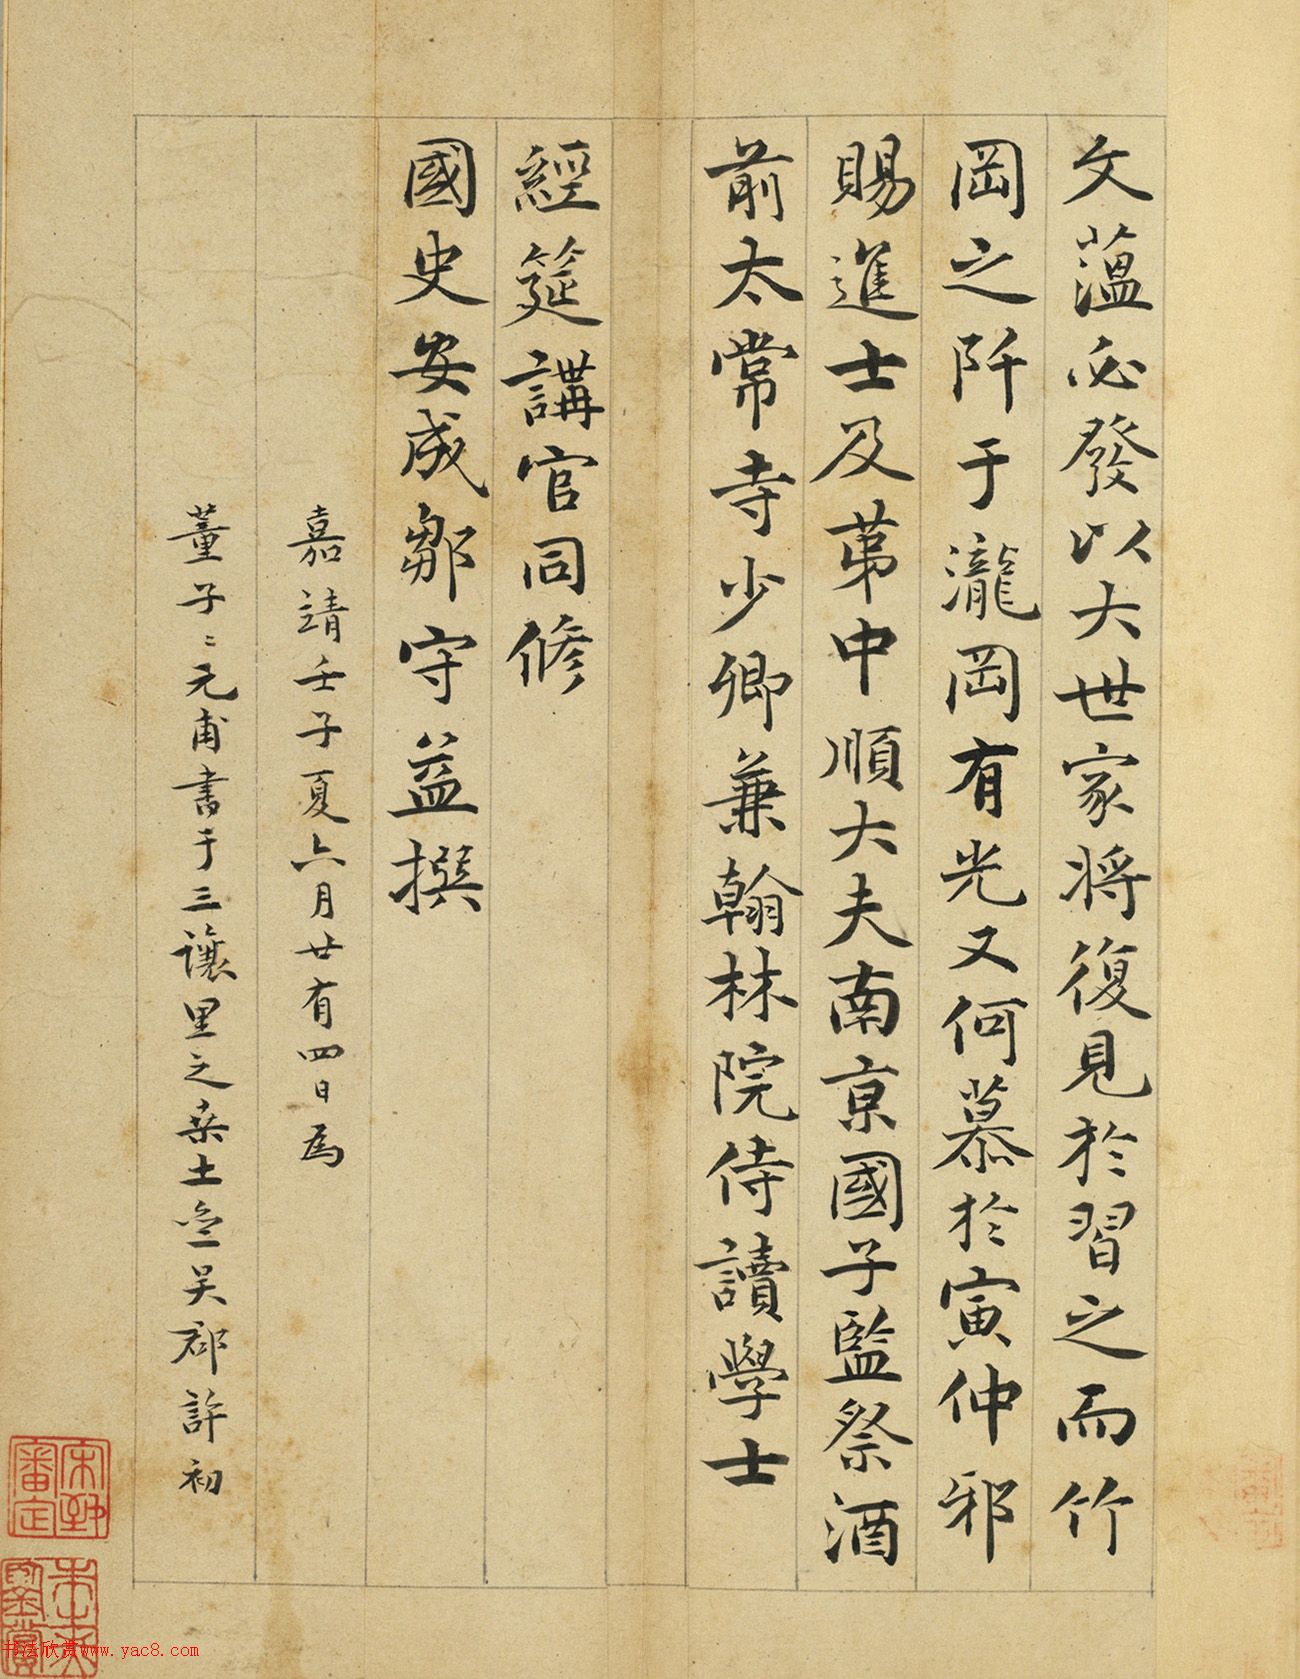 文薀必發以大世家將復見於習之而竹
岡之阡于瀧岡有光又何慕於寅仲邪
賜進士及苐中順大夫南京國子監祭酒
前太常寺少卿兼翰林院侍讀學士
經筵講官同修
國史安成鄒守益撰
嘉靖壬子夏六月廿有四日為
董子〻元甫書于三讓里之桑土亝吴郡許初
书法欣赏www.yac8.com